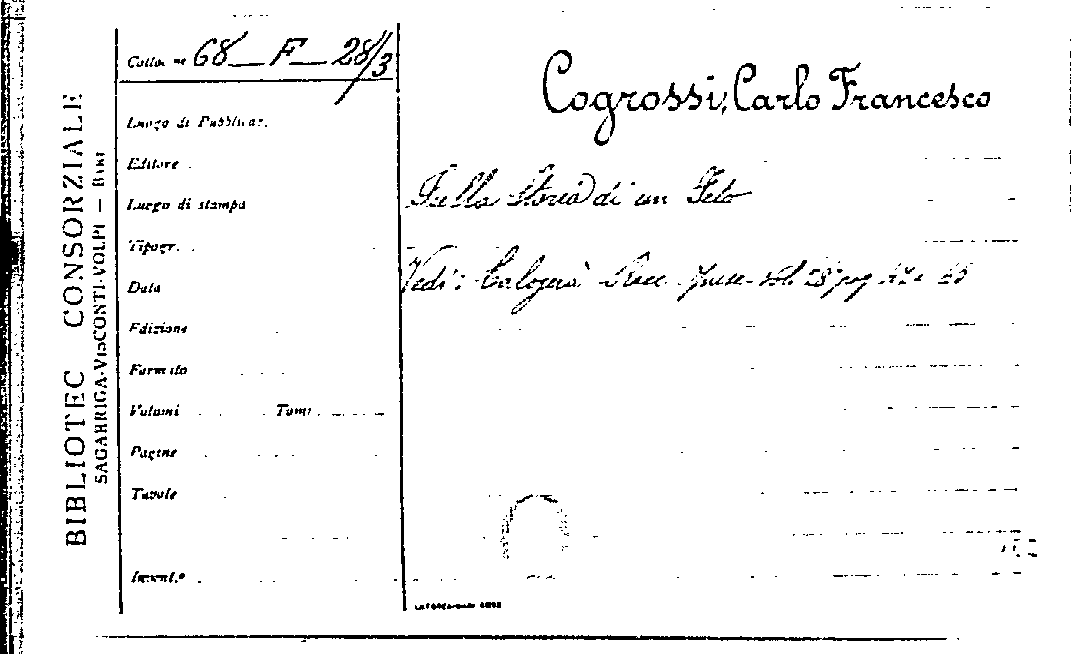 BIBLIOTEC CONSORZIALE
SAGARRIGA-VISCONTI-VOLPI — BARI
Colloc. ne 68 — F — 28/3
Luogo di Pubblicaz.
Editore
Luogo di stampa
Tipogr.
Data
Edizione
Formato
Volumi Tomi
Pagine
Tavole
Invent.º
Cogrossi, Carlo Francesco
Sulla Storia di un Feto
Vedi: Calogerà Racc. Opusc. vol. 28 pag.